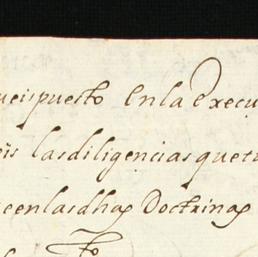 ueis puesto En la Execu
eis las diligencias que tu
e en las dhas Doctrinas